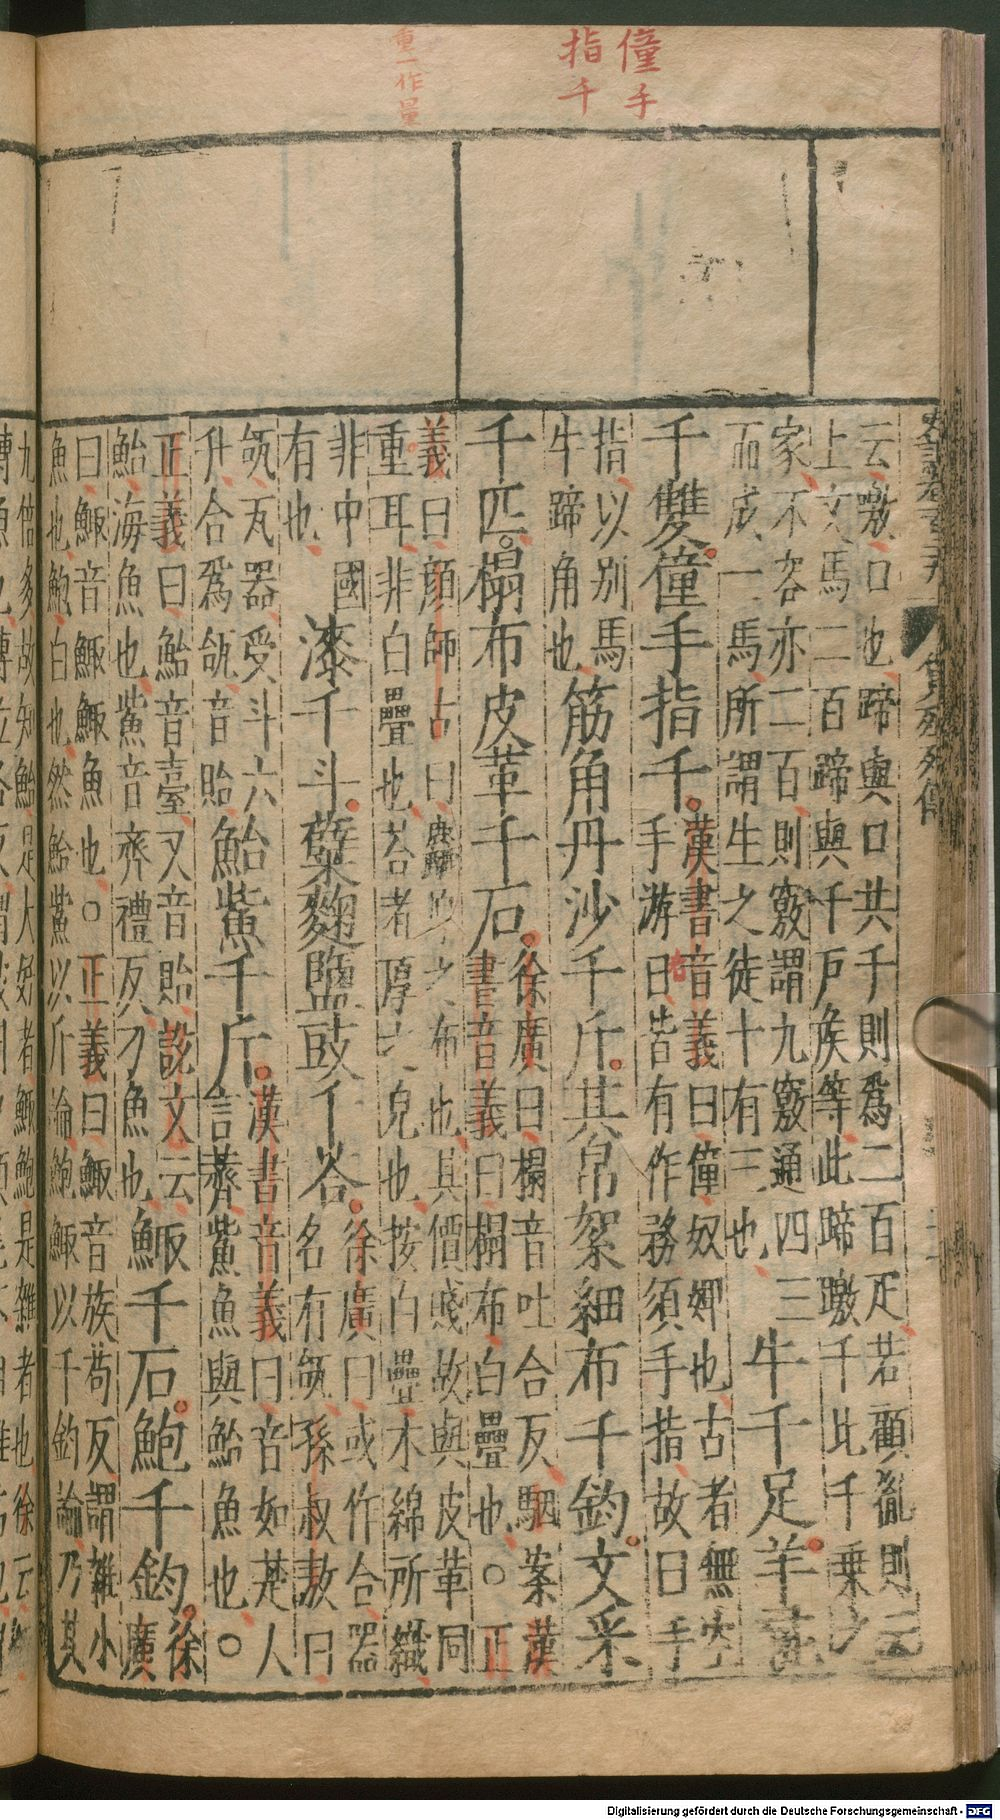 僮手
指千
重一作量
貨殖列傳
云噭口也蹄與口共千則為二百疋若顧亂則云
上文馬二百蹄與千戶侯等此蹄噭千比千乘之
家不容亦二百則竅謂九竅通四三
而成一馬所謂生之徒十有三也
牛千足羊彘
千雙僮手指千
漢書音義曰僮奴婢也古者無空
手游日皆有作務須手指故曰手
指以別馬
牛蹄角也
筋角丹沙千斤其帛絮細布千鈞文采
千匹榻布皮革千石
徐廣曰榻音吐合反駰案漢
書音義曰榻布白疊也○正
義曰顏師古曰麤厚之布也其價賤故與皮革同
重耳非白疊也荅者厚之皃也按白疊木綿所織
非中國
有也
漆千斗櫱麴鹽豉千荅
徐廣曰或作合器
名有瓵孫叔敖曰
瓵瓦器受斗六
升合為瓵音貽
鮐鮆千斤
漢書音義曰音如楚人
言薺鮆魚與鮐魚也○
正義曰鮐音臺又音貽說文云
鮐海魚也鮆音齊禮反刀魚也
鯫千石鮑千鈞
徐
廣
曰鯫音鯫鯫魚也○正義曰鯫音族苟反謂雜小
魚也鮑白也然鮐鮆以斤論鮑鯫以千鈞論乃其
九倍多故知鮐是大好者鯫鮑是雜者也徐云
Digitalisierung gefördert durch die Deutsche Forschungsgemeinschaft - DFG